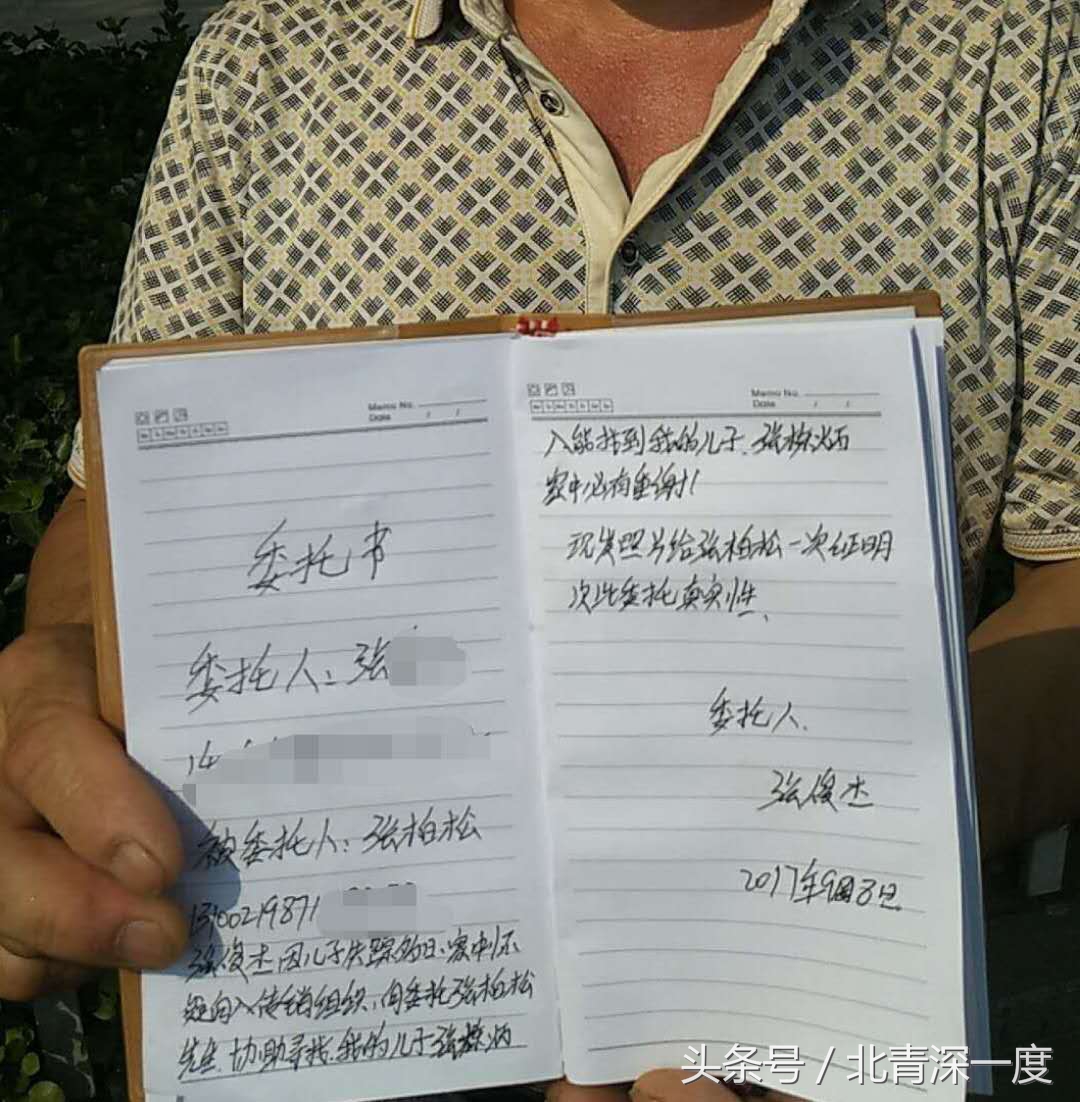 Memo No.
Date / /
委托书
委托人：张
14
被委托人：张柏松
13100219871
张俊杰因儿子失踪多日、家中怀
疑向入传销组织，向委托张柏松
先生.协助寻找.我的儿子张栋炳
Memo No.
Date / /
入能找到我的儿子、张栋炳
家中必有重谢！
现发照片给张柏松一次证明
次此委托真实性、
委托人、
张俊杰
2017年9月8日
头条号 / 北青深一度